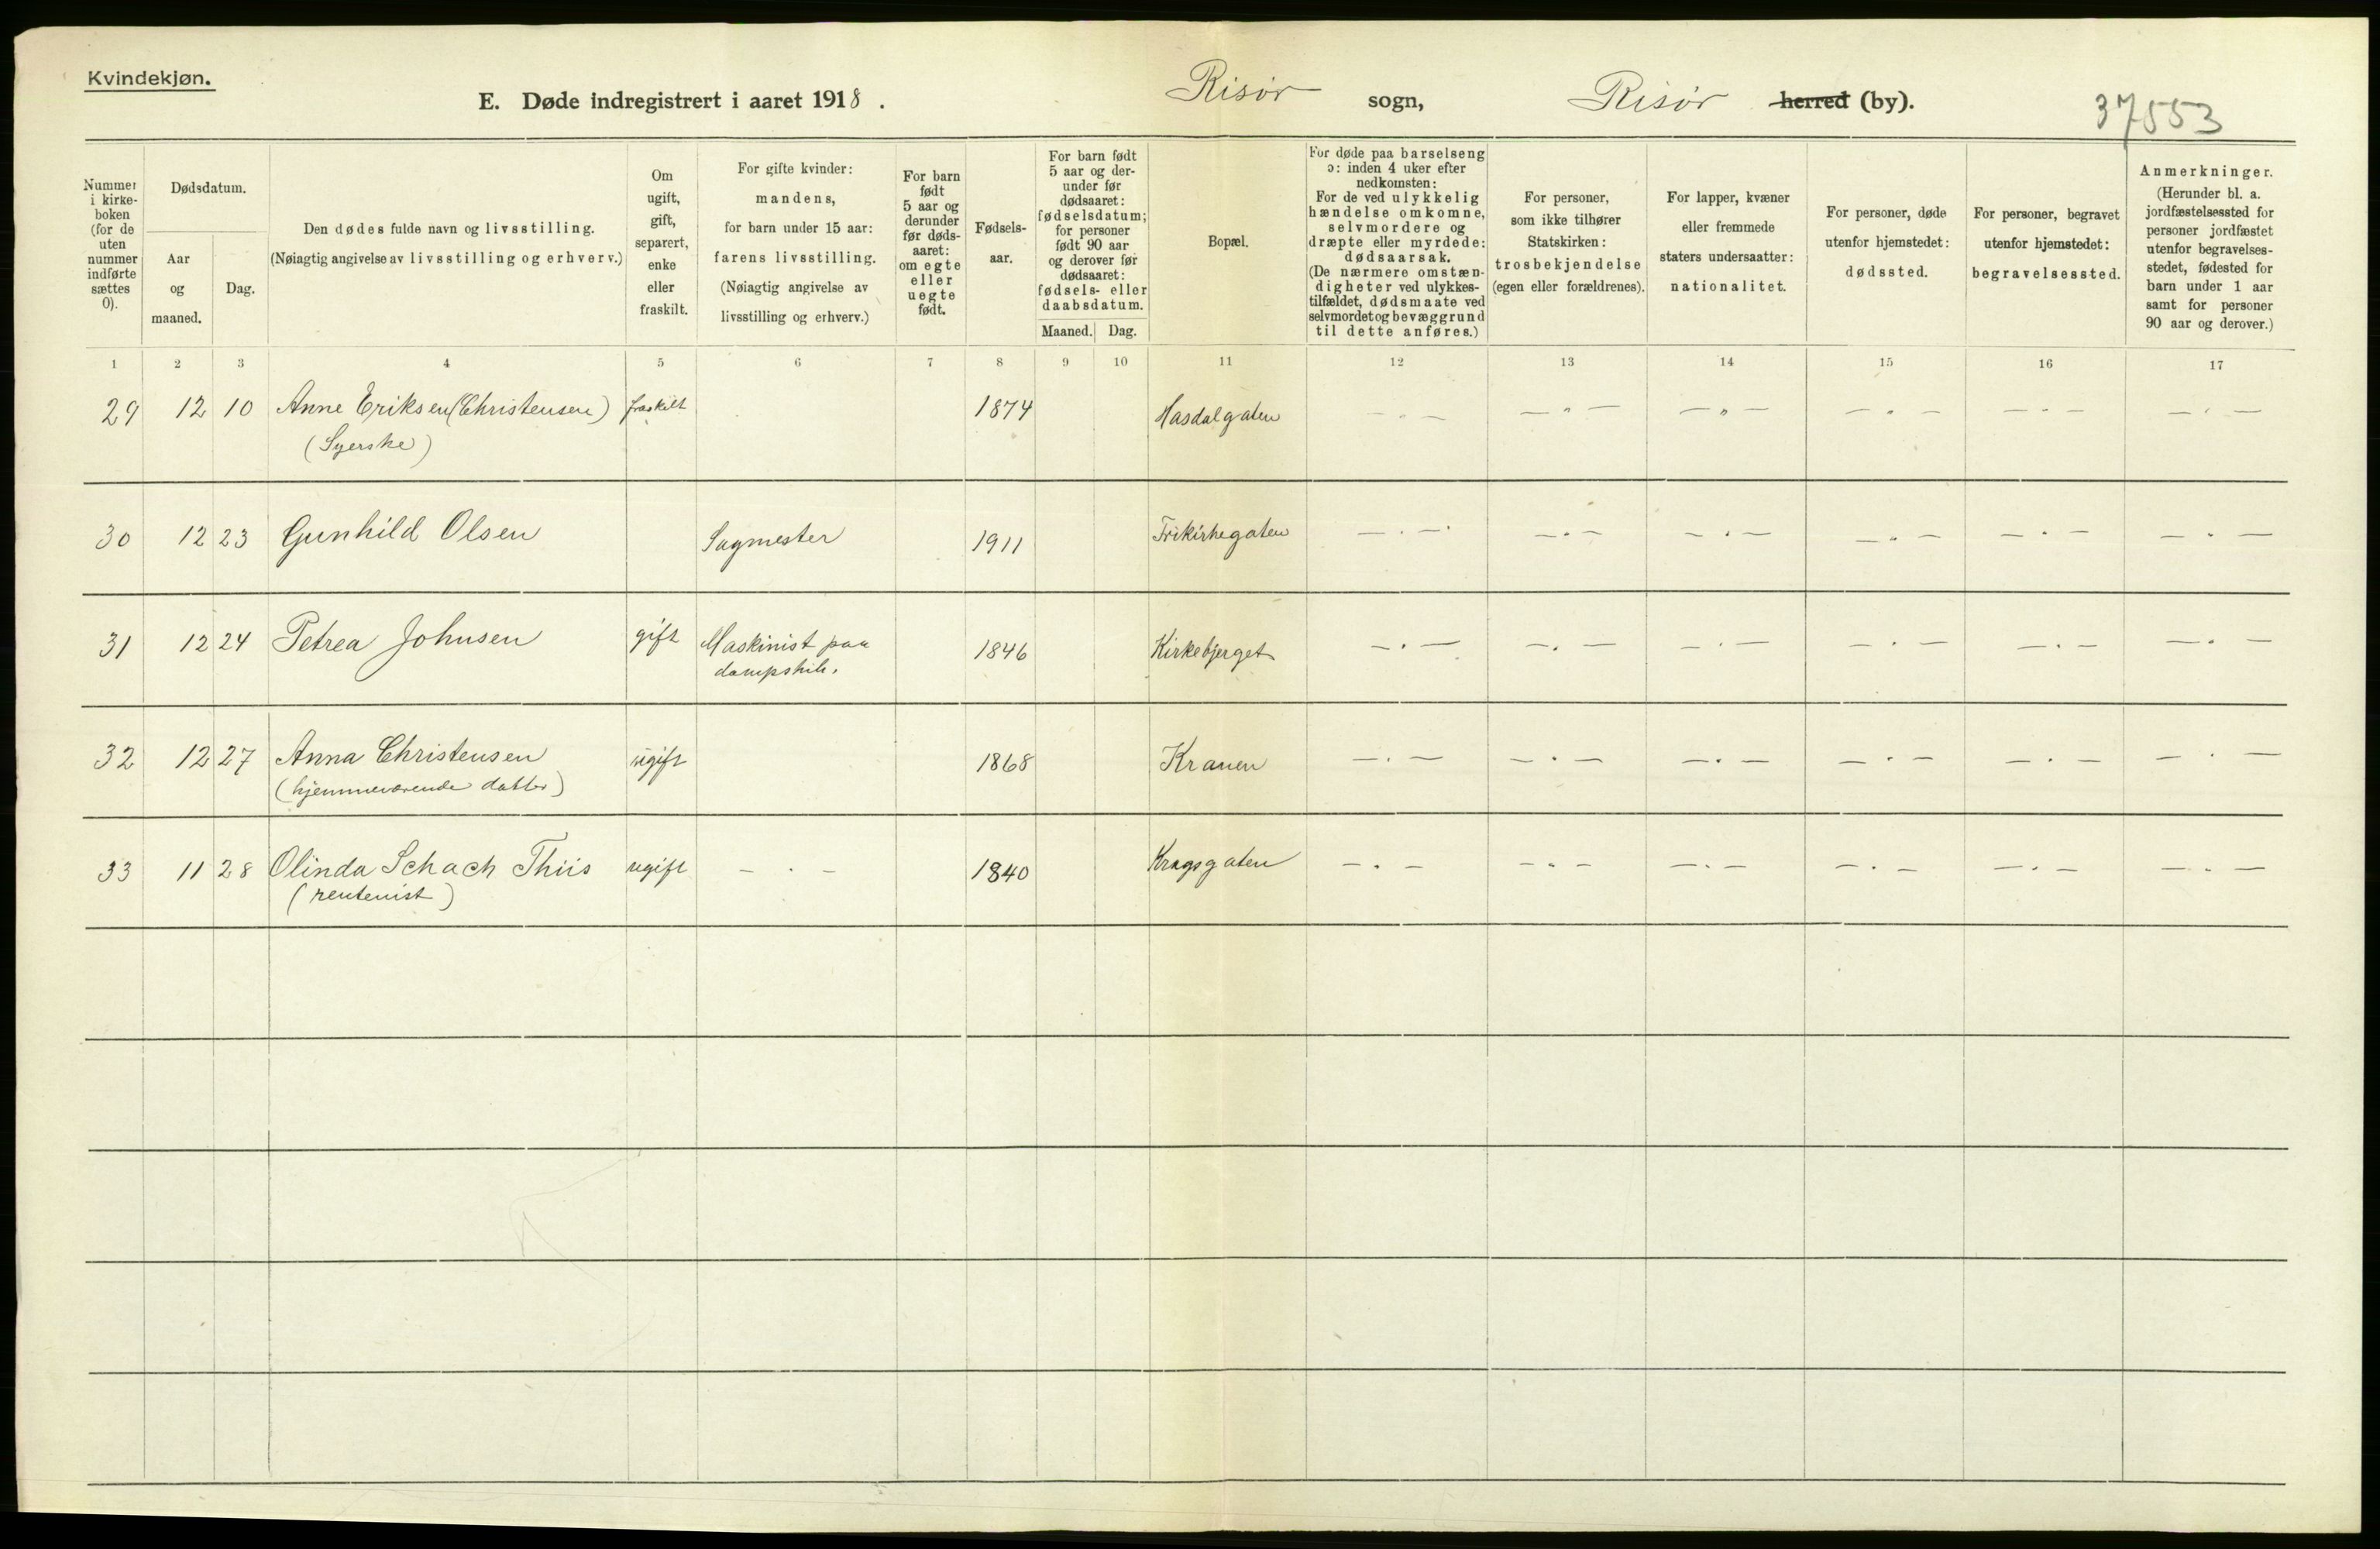 Kvindekjøn.
E. Døde indregistrert i aaret 1918 . Risør sogn, Risør herred (by). 37553
Nummer i kirke- boken (for de uten nummer indførte sættes 0).
Dødsdatum.
Aar og maaned.
Dag.
Den dødes fulde navn og livsstilling.
(Nøiagtig angivelse av livsstilling og erhverv.)
Om ugift, gift, separert, enke eller fraskilt.
For gifte kvinder:
mandens,
for barn under 15 aar:
farens livsstilling.
(Nøiagtig angivelse av
livsstilling og erhverv.)
For barn født 5 aar og derunder før døds- aaret: om egte eller uegte født.
Fødsels-
aar.
For barn født 5 aar og der- under før dødsaaret: fødselsdatum; for personer født 90 aar og derover før dødsaaret: fødsels- eller daabsdatum.
Maaned. Dag.
Bopæl.
For døde paa barselseng ɔ: inden 4 uker efter nedkomsten: For de ved ulykkelig hændelse omkomne, selvmordere og dræpte eller myrdede: dødsaarsak. (De nærmere omstæn- digheter ved ulykkes- tilfældet, dødsmaate ved selvmordet og bevæggrund til dette anføres.)
For personer,
som ikke tilhører
Statskirken:
trosbekjendelse
(egen eller forældrenes).
For lapper, kvæner
eller fremmede
staters undersaatter:
nationalitet.
For personer, døde
utenfor hjemstedet:
dødssted.
For personer, begravet
utenfor hjemstedet:
begravelsessted.
Anmerkninger.
(Herunder bl. a.
jordfæstelsessted for
personer jordfæstet
utenfor begravelses-
stedet, fødested for
barn under 1 aar
samt for personer
90 aar og derover.)
1 2 3 4 5 6 7 8 9 10 11 12 13 14 15 16 17
29 12 10 Anne Eriksen (Christensen) fraskilt 1874 Hasdalgaten — " — — " — — " — — " — — " — — " —
(Syerske)
30 12 23 Gunhild Olsen Sagmester 1911 Frikirkegaten — " — — " — — " — — " — — " — — " —
31 12 24 Petrea Johnsen gift Maskinist paa 1846 Kirkebjerget — " — — " — — " — — " — — " — — " —
dampskib.
32 12 27 Anna Christensen ugift 1868 Kranen — " — — " — — " — — " — — " — — " —
(hjemmeværende datter)
33 11 28 Olinda Schach Thiis ugift — " — 1840 Kragsgaten — " — — " — — " — — " — — " — — " —
(rentenist)